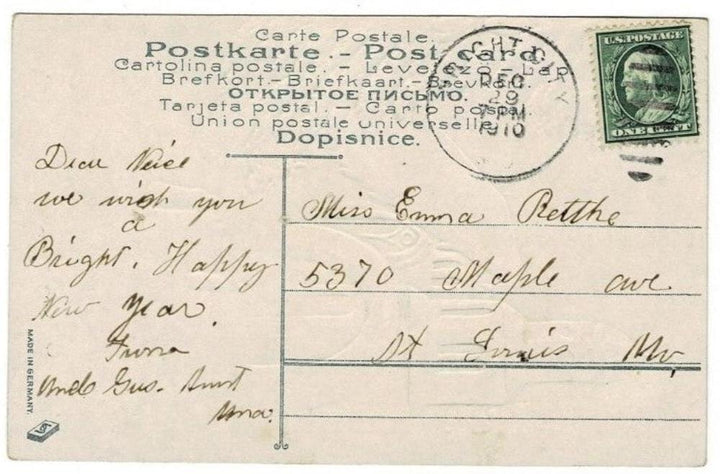 Carte Postale.
Postkarte. - Post-card.
Cartolina postale. - Levelező-Lap.
Brefkort. - Briefkaart. - Brevkort.
ОТКРЫТОЕ ПИСЬМО.
Tarjeta postal. - Carto postal.
Union postale universelle.
Dopisnice.
DEC
29
7 PM
1910
U.S. POSTAGE
ONE CENT
Dear Neice
we wish you
a
Bright, Happy
New Year.
From
Uncle Gus. Aunt
Miss Emma Retthe
5370 Maple ave
St Louis Mo,
MADE IN GERMANY.